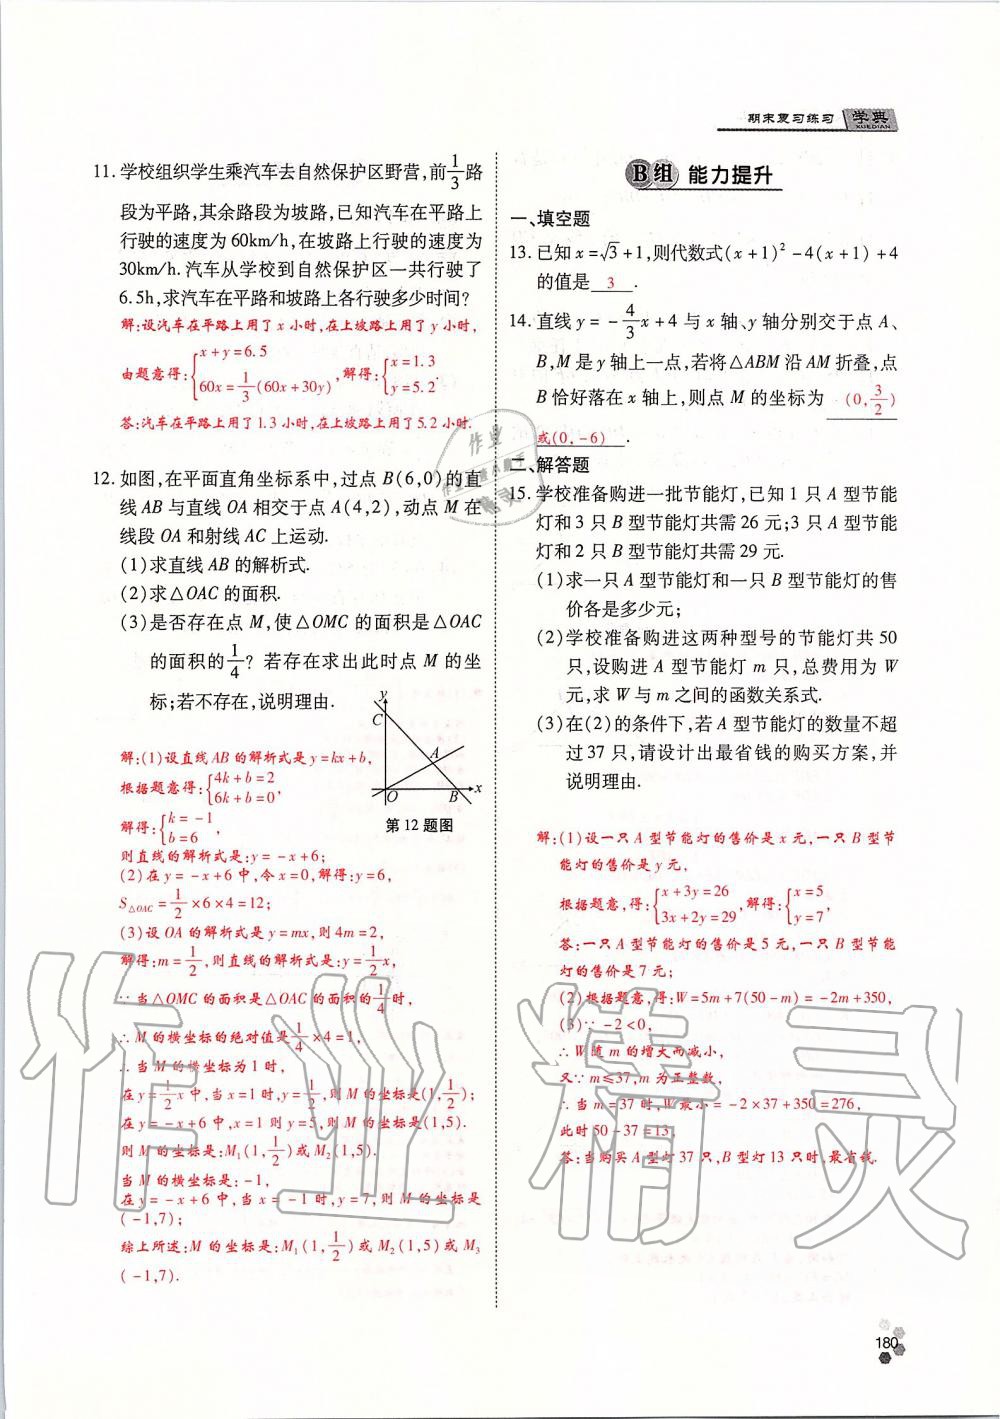 期末复习练习 学典
XUEDIAN
11. 学校组织学生乘汽车去自然保护区野营,前1/3路
段为平路,其余路段为坡路,已知汽车在平路上
行驶的速度为60km/h,在坡路上行驶的速度为
30km/h.汽车从学校到自然保护区一共行驶了
6.5h,求汽车在平路和坡路上各行驶多少时间?
解:设汽车在平路上用了x小时,在上坡路上用了y小时,
由题意得:{x+y=6.5 60x=1/3(60x+30y),解得:{x=1.3 y=5.2.
答:汽车在平路上用了1.3小时,在上坡路上用了5.2小时.
12. 如图,在平面直角坐标系中,过点B(6,0)的直
线AB与直线OA相交于点A(4,2),动点M在
线段OA和射线AC上运动.
(1)求直线AB的解析式.
(2)求△OAC的面积.
(3)是否存在点M,使△OMC的面积是△OAC
的面积的1/4?若存在求出此时点M的坐
标;若不存在,说明理由.
y
C
A
O B x
第12题图
解:(1)设直线AB的解析式是y=kx+b,
根据题意得:{4k+b=2 6k+b=0,
解得:{k=-1 b=6,
则直线的解析式是:y=-x+6;
(2)在y=-x+6中,令x=0,解得:y=6,
S△OAC=1/2×6×4=12;
(3)设OA的解析式是y=mx,则4m=2,
解得:m=1/2,则直线的解析式是:y=1/2x,
∵当△OMC的面积是△OAC的面积的1/4时,
∴M的横坐标的绝对值是1/4×4=1,
∴当M的横坐标为1时,
在y=1/2x中,当x=1时,y=1/2,则M的坐标是(1,1/2);
在y=-x+6中,x=1则y=5,则M的坐标是(1,5).
则M的坐标是:M1(1,1/2)或M2(1,5).
当M的横坐标是:-1,
在y=-x+6中,当x=-1时,y=7,则M的坐标是
(-1,7);
综上所述:M的坐标是:M1(1,1/2)或M2(1,5)或M3
(-1,7).
B组 能力提升
一、填空题
13. 已知x=√3+1,则代数式(x+1)²-4(x+1)+4
的值是 3 .
14. 直线y=-4/3x+4与x轴、y轴分别交于点A、
B,M是y轴上一点,若将△ABM沿AM折叠,点
B恰好落在x轴上,则点M的坐标为 (0,3/2)
或(0,-6) .
二、解答题
15. 学校准备购进一批节能灯,已知1只A型节能
灯和3只B型节能灯共需26元;3只A型节能
灯和2只B型节能灯共需29元.
(1)求一只A型节能灯和一只B型节能灯的售
价各是多少元;
(2)学校准备购进这两种型号的节能灯共50
只,设购进A型节能灯m只,总费用为W
元,求W与m之间的函数关系式.
(3)在(2)的条件下,若A型节能灯的数量不超
过37只,请设计出最省钱的购买方案,并
说明理由.
解:(1)设一只A型节能灯的售价是x元,一只B型节
能灯的售价是y元,
根据题意,得:{x+3y=26 3x+2y=29,解得:{x=5 y=7,
答:一只A型节能灯的售价是5元,一只B型节能
灯的售价是7元;
(2)根据题意,得:W=5m+7(50-m)=-2m+350,
(3)∵-2<0,
∴W随m的增大而减小,
又∵m≤37,m为正整数,
∴当m=37时,W最小=-2×37+350=276,
此时50-37=13,
答:当购买A型灯37只,B型灯13只时,最省钱.
180
作业精灵